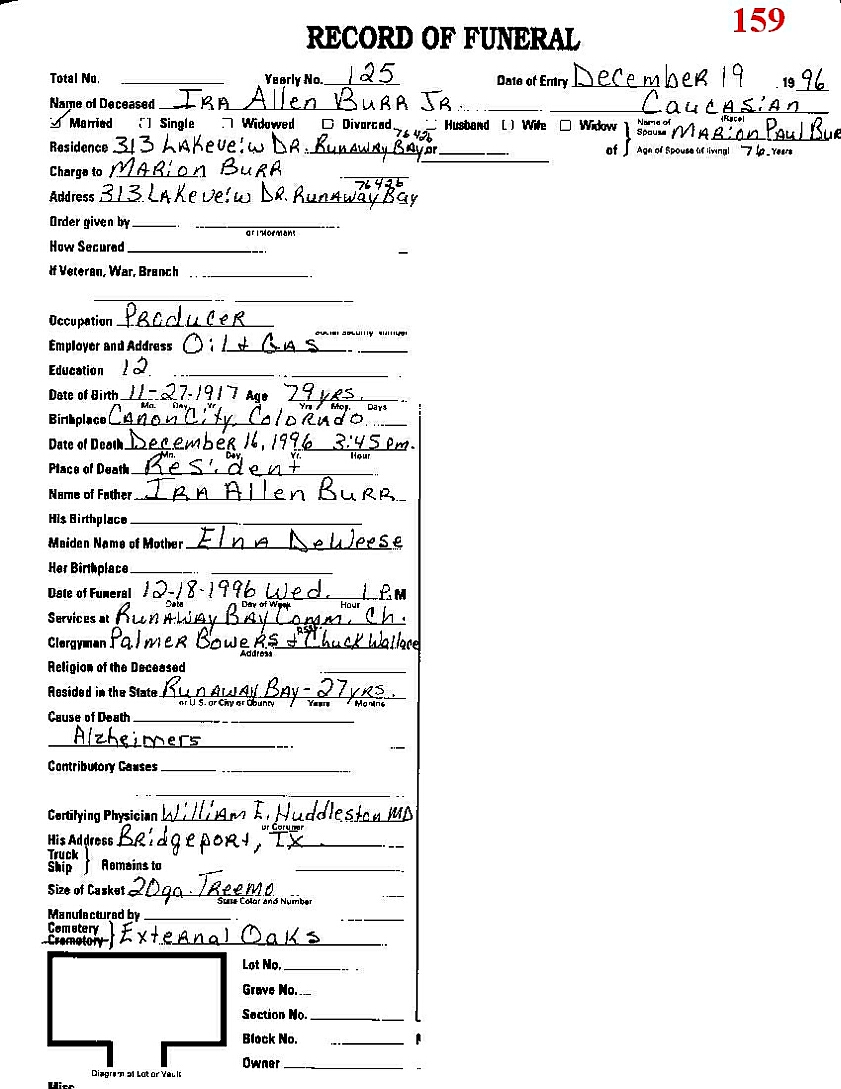 159
RECORD OF FUNERAL
Total No. Yearly No. 125 Date of Entry December 19 1996
Name of Deceased Ira Allen Burr Jr. Caucasian
(Race)
Married Single Widowed Divorced Husband Wife Widow of Name of Spouse Marion Paul Bur
Residence 313 Lakeveiw Dr. Runaway Bay 76426 or Age of Spouse (if living) 76 Years
Charge to Marion Burr
Address 313 Lakeveiw Dr. Runaway Bay 76426
Order given by
or Informant
How Secured
If Veteran, War, Branch
Occupation Producer
Social Security Number
Employer and Address Oil & Gas
Education 12
Date of Birth 11-27-1917 Age 79 yrs.
Mo. Day Yr. Yrs Mos. Days
Birthplace Canon City, Colorado
Date of Death December 16, 1996 3:45 pm.
Mo. Day Yr. Hour
Place of Death Resident
Name of Father Ira Allen Burr
His Birthplace
Maiden Name of Mother Elna DeWeese
Her Birthplace
Date of Funeral 12-18-1996 Wed. 1 P.M
Date Day of Week Hour
Services at Runaway Bay Comm. Ch.
Clergyman Palmer Bowers & Chuck Wallace
Address
Religion of the Deceased
Resided in the State Runaway Bay - 27 yrs.
or U.S. or City or County Years Months
Cause of Death
Alzheimers
Contributory Causes
Certifying Physician William I. Huddleston MD
or Coroner
His Address Bridgeport, TX
Truck
Ship Remains to
Size of Casket 20ga. Treemo
State Color and Number
Manufactured by
Cemetery
Crematory External Oaks
Lot No.
Grave No.
Section No.
Block No.
Owner
Diagram of Lot or Vault
Misc